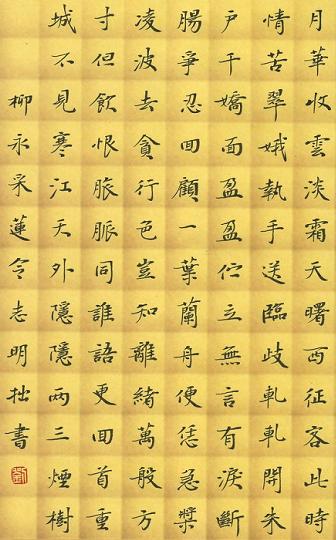 月華收雲淡霜天曙西征客此時
情苦翠娥執手送臨歧軋軋開朱
戶千嬌面盈盈佇立無言有淚斷
腸爭忍回顧一葉蘭舟便恁急槳
凌波去貪行色豈知離緒萬般方
寸但飲恨脈脈同誰語更回首重
城不見寒江天外隱隱兩三煙樹
柳永采蓮令志明拙書